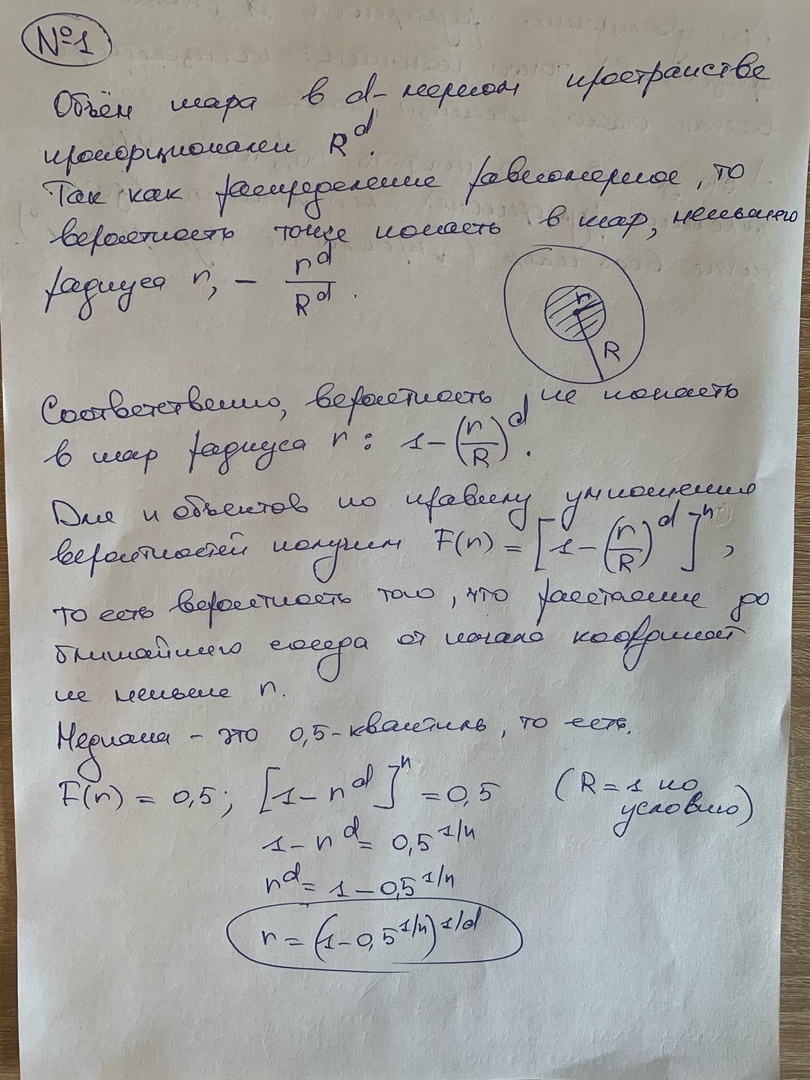 №1
Объём шара в d-мерном пространстве
пропорционален R^d.
Так как распределение равномерное, то
вероятность точке попасть в шар, меньшего
радиуса r, – r^d/R^d.
r
R
Соответственно, вероятность не попасть
в шар радиуса r: 1-(r/R)^d.
Для n объектов по правилу умножения
вероятностей получим F(r) = [1-(r/R)^d]^n,
то есть вероятность того, что расстояние до
ближайшего соседа от начала координат
не меньше r.
Медиана - это 0,5-квантиль, то есть.
F(r) = 0,5; [1-r^d]^n = 0,5 (R=1 по
условию)
1-r^d = 0,5^1/n
r^d = 1-0,5^1/n
r = (1-0,5^1/n)^1/d